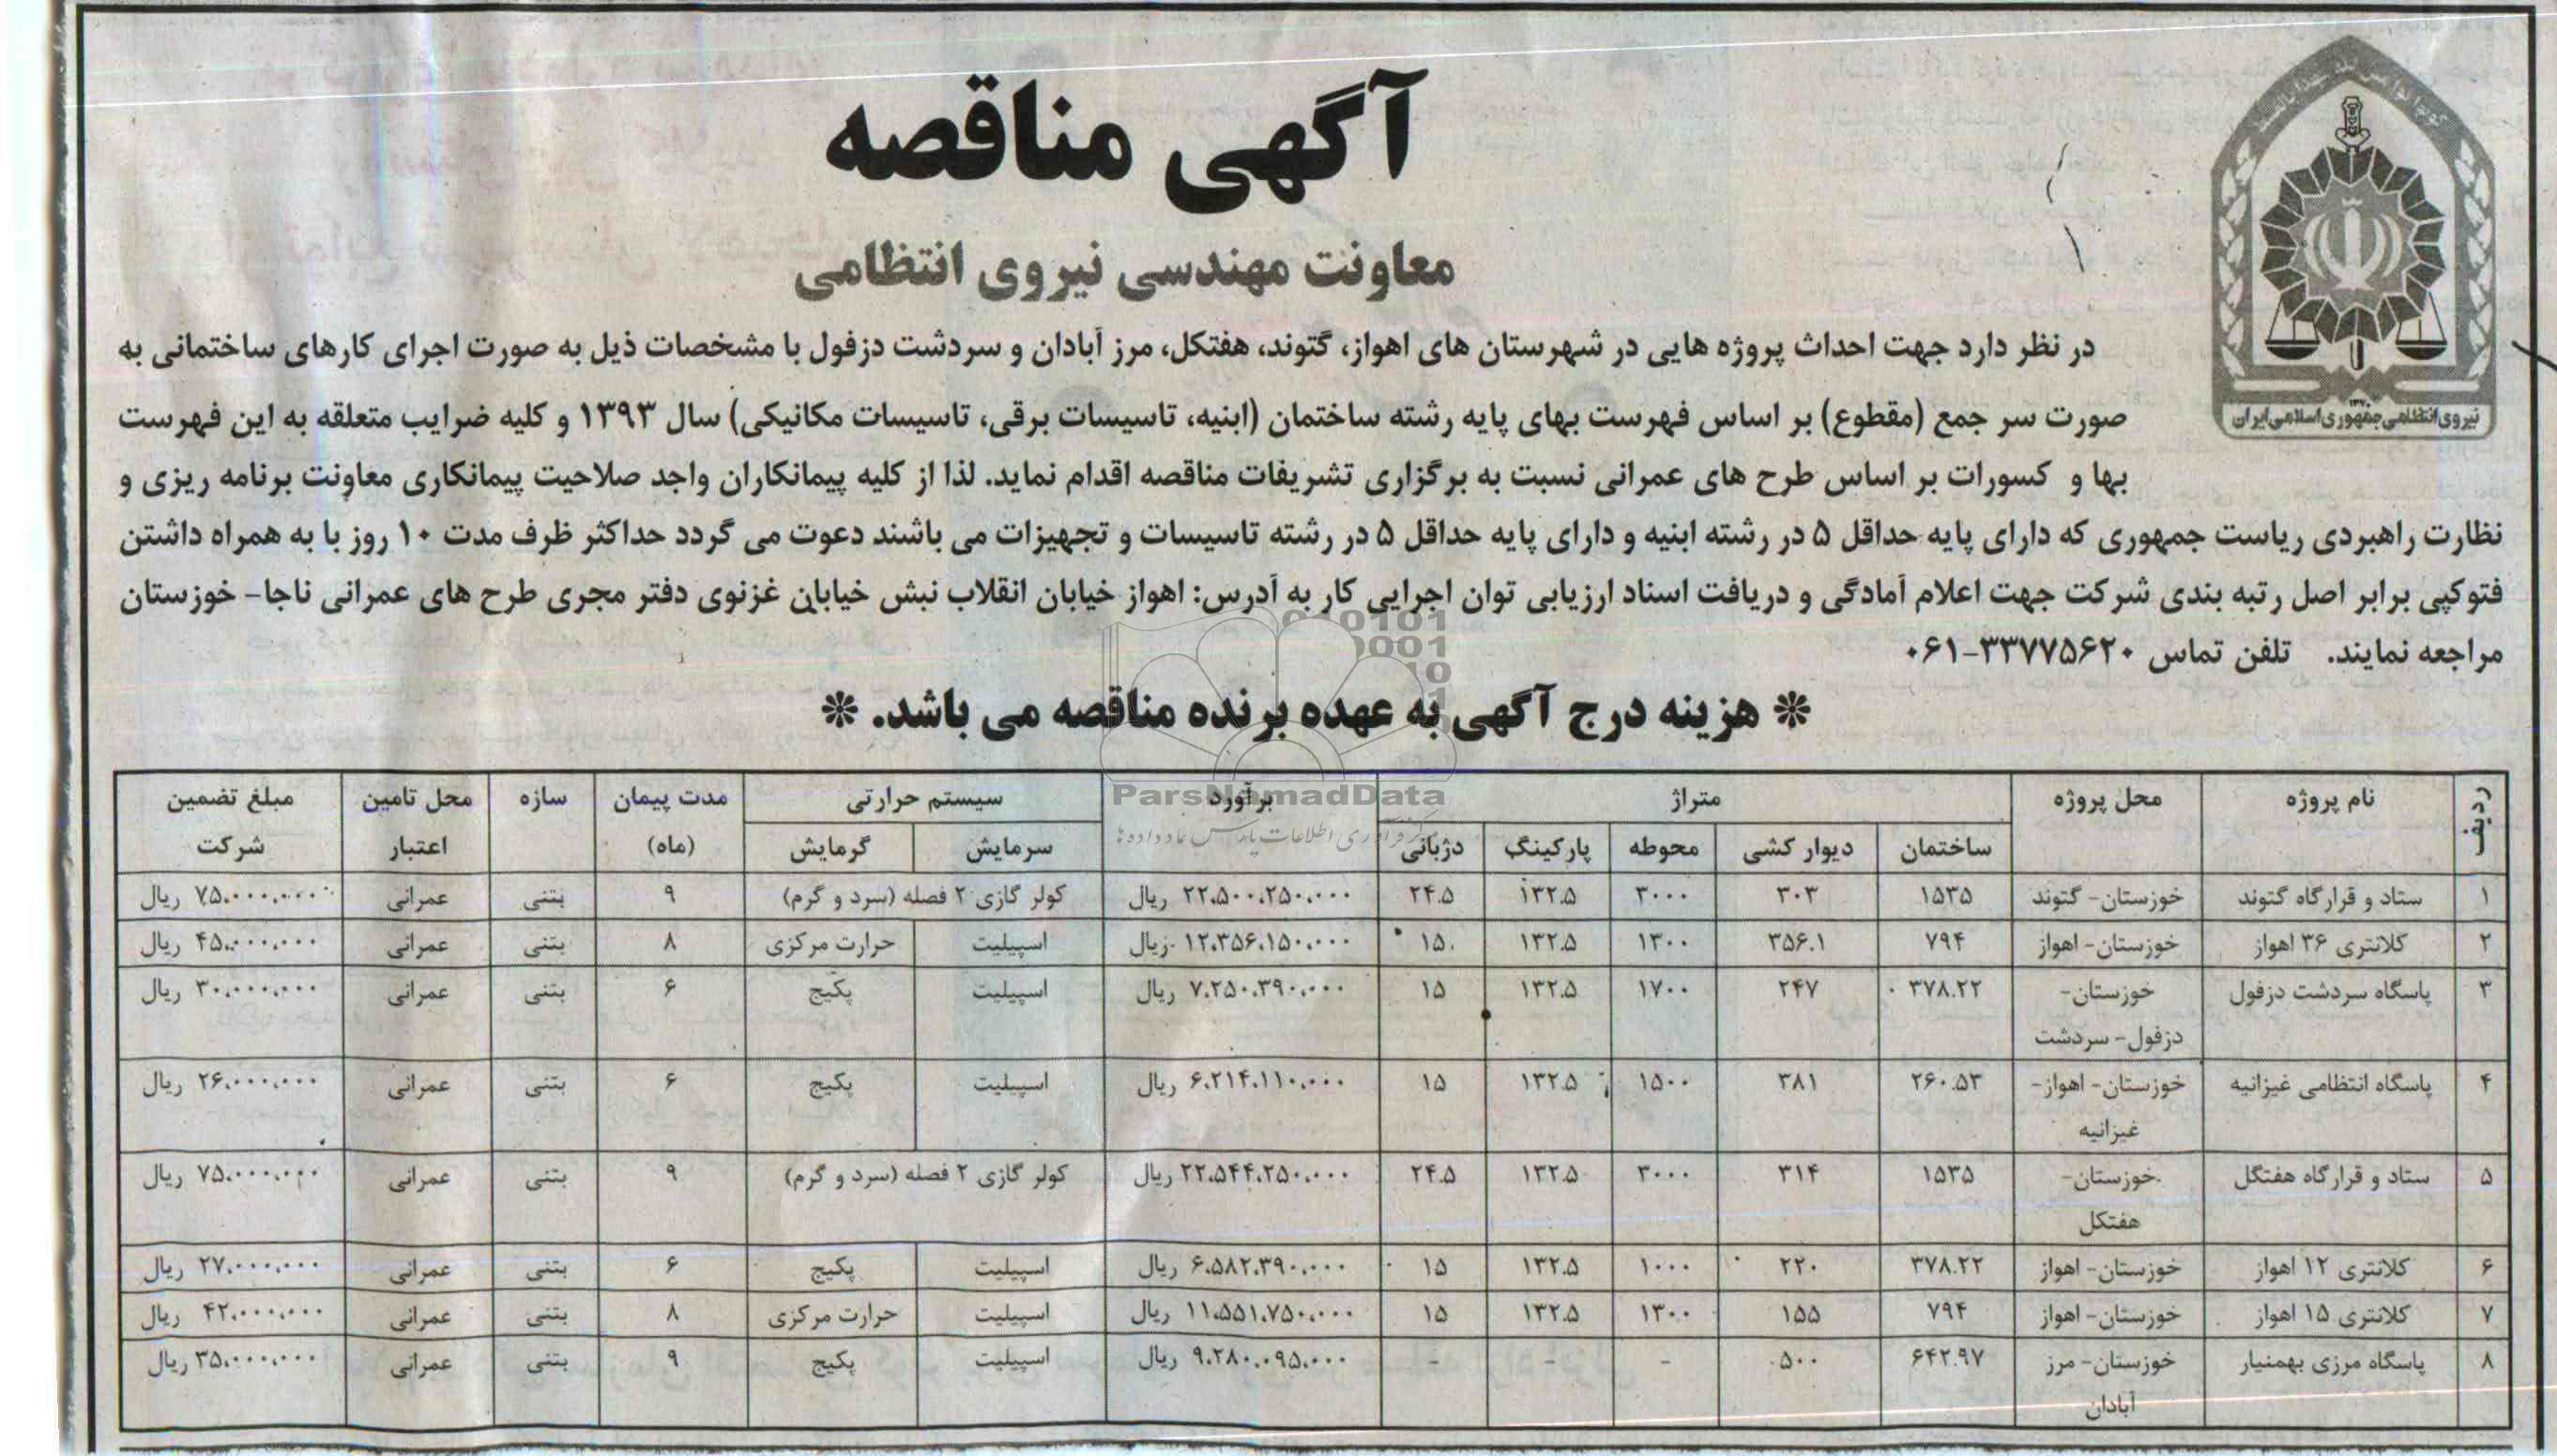 آگهی مناقصه
معاونت مهندسی نیروی انتظامی
نیروی انتظامی جمهوری اسلامی ایران
در نظر دارد جهت احداث پروژه هایی در شهرستان های اهواز، گتوند، هفتکل، مرز آبادان و سردشت دزفول با مشخصات ذیل به صورت اجرای کارهای ساختمانی به
صورت سر جمع (مقطوع) بر اساس فهرست بهای پایه رشته ساختمان (ابنیه، تاسیسات برقی، تاسیسات مکانیکی) سال ۱۳۹۳ و کلیه ضرایب متعلقه به این فهرست
بها و کسورات بر اساس طرح های عمرانی نسبت به برگزاری تشریفات مناقصه اقدام نماید. لذا از کلیه پیمانکاران واجد صلاحیت پیمانکاری معاونت برنامه ریزی و
نظارت راهبردی ریاست جمهوری که دارای پایه حداقل ۵ در رشته ابنیه و دارای پایه حداقل ۵ در رشته تاسیسات و تجهیزات می باشند دعوت می گردد حداکثر ظرف مدت ۱۰ روز با به همراه داشتن
فتوکپی برابر اصل رتبه بندی شرکت جهت اعلام آمادگی و دریافت اسناد ارزیابی توان اجرایی کار به آدرس: اهواز خیابان انقلاب نبش خیابان غزنوی دفتر مجری طرح های عمرانی ناجا- خوزستان
مراجعه نمایند. تلفن تماس ۳۳۷۷۵۶۲۰-۰۶۱
* هزینه درج آگهی به عهده برنده مناقصه می باشد. *
ParsNamadData
ردیف نام پروژه محل پروژه متراژ برآورد سیستم حرارتی مدت پیمان (ماه) سازه محل تامین اعتبار مبلغ تضمین شرکت
ساختمان دیوار کشی محوطه پارکینگ دژبانی سرمایش گرمایش
۱ ستاد و قرارگاه گتوند خوزستان- گتوند ۱۵۳۵ ۳۰۳ ۳۰۰۰ ۱۳۲.۵ ۲۴.۵ ۲۲،۵۰۰،۲۵۰،۰۰۰ ریال کولر گازی ۲ فصله (سرد و گرم) ۹ بتنی عمرانی ۷۵،۰۰۰،۰۰۰ ریال
۲ کلانتری ۳۶ اهواز خوزستان- اهواز ۷۹۴ ۳۵۶.۱ ۱۳۰۰ ۱۳۲.۵ ۱۵ ۱۲،۳۵۶،۱۵۰،۰۰۰ ریال اسپیلیت حرارت مرکزی ۸ بتنی عمرانی ۴۵،۰۰۰،۰۰۰ ریال
۳ پاسگاه سردشت دزفول خوزستان- دزفول- سردشت ۳۷۸.۲۲ ۲۴۷ ۱۷۰۰ ۱۳۲.۵ ۱۵ ۷،۲۵۰،۳۹۰،۰۰۰ ریال اسپیلیت پکیج ۶ بتنی عمرانی ۳۰،۰۰۰،۰۰۰ ریال
۴ پاسگاه انتظامی غیزانیه خوزستان- اهواز- غیزانیه ۲۶۰.۵۳ ۳۸۱ ۱۵۰۰ ۱۳۲.۵ ۱۵ ۶،۲۱۴،۱۱۰،۰۰۰ ریال اسپیلیت پکیج ۶ بتنی عمرانی ۲۶،۰۰۰،۰۰۰ ریال
۵ ستاد و قرارگاه هفتگل خوزستان- هفتکل ۱۵۳۵ ۳۱۴ ۳۰۰۰ ۱۳۲.۵ ۲۴.۵ ۲۲،۵۴۴،۲۵۰،۰۰۰ ریال کولر گازی ۲ فصله (سرد و گرم) ۹ بتنی عمرانی ۷۵،۰۰۰،۰۰۰ ریال
۶ کلانتری ۱۲ اهواز خوزستان- اهواز ۳۷۸.۲۲ ۲۲۰ ۱۰۰۰ ۱۳۲.۵ ۱۵ ۶،۵۸۲،۳۹۰،۰۰۰ ریال اسپیلیت پکیج ۶ بتنی عمرانی ۲۷،۰۰۰،۰۰۰ ریال
۷ کلانتری ۱۵ اهواز خوزستان- اهواز ۷۹۴ ۱۵۵ ۱۳۰۰ ۱۳۲.۵ ۱۵ ۱۱،۵۵۱،۷۵۰،۰۰۰ ریال اسپیلیت حرارت مرکزی ۸ بتنی عمرانی ۴۲،۰۰۰،۰۰۰ ریال
۸ پاسگاه مرزی بهمنیار خوزستان- مرز آبادان ۶۴۲.۹۷ ۵۰۰ - - - ۹،۲۸۰،۰۹۵،۰۰۰ ریال اسپیلیت پکیج ۹ بتنی عمرانی ۳۵،۰۰۰،۰۰۰ ریال